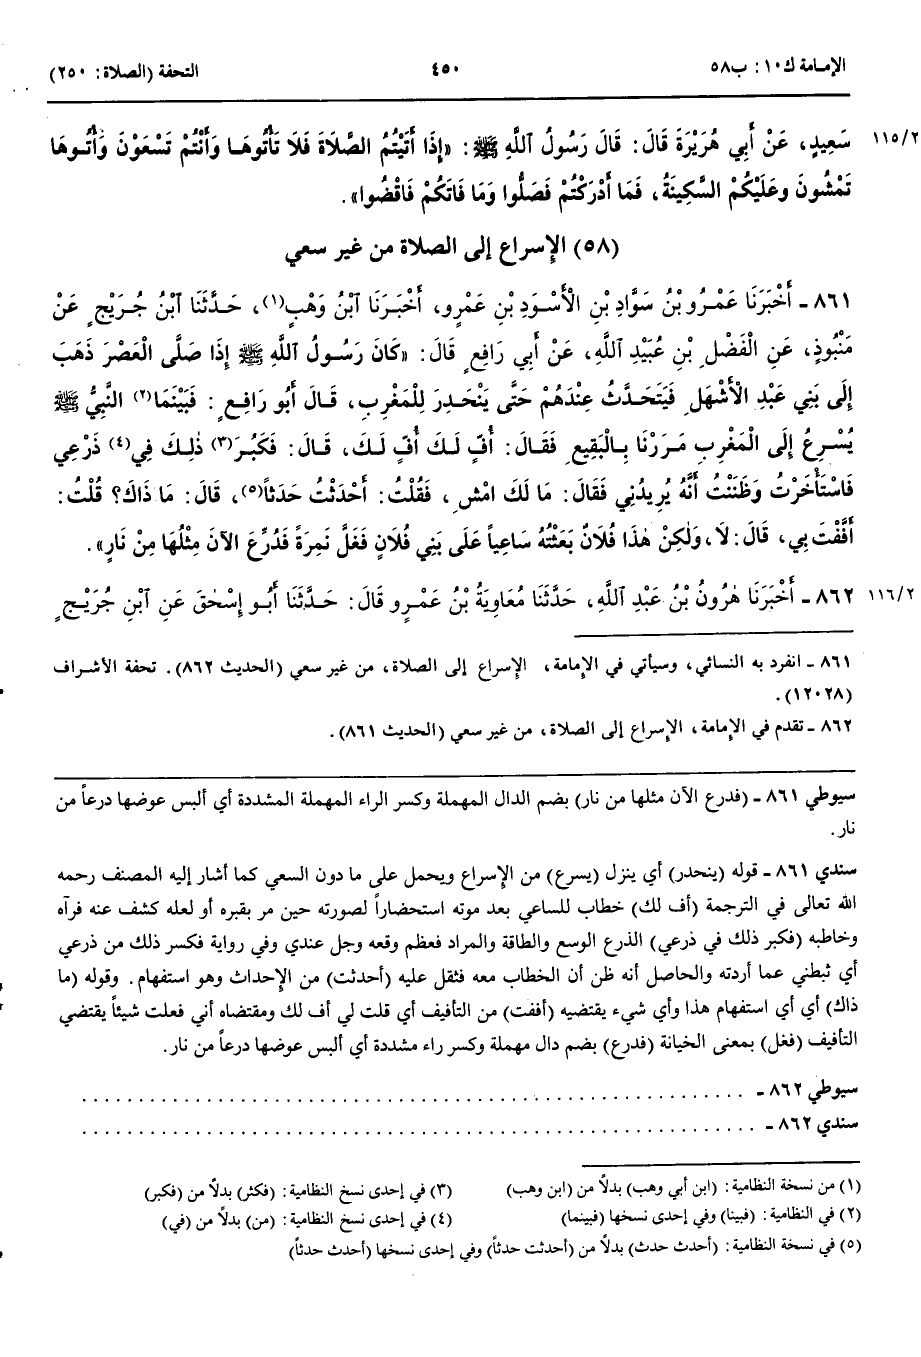 الإمامة ك١٠: ب٥٨ ٤٥٠ التحفة (الصلاة: ٢٥٠)
١١٥/٢ سَعِيدٍ، عَنْ أَبِي هُرَيْرَةَ قَالَ: قَالَ رَسُولُ ٱللَّهِ ﷺ: «إِذَا أَتَيْتُمُ الصَّلَاةَ فَلَا تَأْتُوهَا وَأَنْتُمْ تَسْعَوْنَ وَأْتُوهَا
تَمْشُونَ وعَلَيْكُمْ السَّكِينَةُ، فَمَا أَدْرَكْتُمْ فَصَلُّوا وَمَا فَاتَكُمْ فَاقْضُوا».
(٥٨) الإسراع إلى الصلاة من غير سعي
٨٦١ - أَخْبَرَنَا عَمْرُو بْنُ سَوَّادِ بْنِ الْأَسْوَدِ بْنِ عَمْرٍو، أَخْبَرَنَا ٱبْنُ وَهْبٍ(١)، حَدَّثَنَا ٱبْنُ جُرَيْجٍ عَنْ
مَنْبُوذٍ، عَنِ الْفَضْلِ بْنِ عُبَيْدِ ٱللَّهِ، عَنْ أَبِي رَافِعٍ قَالَ: «كَانَ رَسُولُ ٱللَّهِ ﷺ إِذَا صَلَّى الْعَصْرَ ذَهَبَ
إِلَى بَنِي عَبْدِ الْأَشْهَلِ فَيَتَحَدَّثُ عِنْدَهُمْ حَتَّى يَنْحَدِرَ لِلْمَغْرِبِ، قَالَ أَبُو رَافِعٍ: فَبَيْنَمَا(٢) النَّبِيُّ ﷺ
يُسْرِعُ إِلَى الْمَغْرِبِ مَرَرْنَا بِالْبَقِيعِ فَقَالَ: أُفٍّ لَكَ أُفٍّ لَكَ، قَالَ: فَكَبُرَ(٣) ذٰلِكَ فِي(٤) ذَرْعِي
فَاسْتَأْخَرْتُ وَظَنَنْتُ أَنَّهُ يُرِيدُنِي فَقَالَ: مَا لَكَ امْشِ، فَقُلْتُ: أَحْدَثْتُ حَدَثاً(٥)، قَالَ: مَا ذَاكَ؟ قُلْتُ:
أَفَّفْتَ بِي، قَالَ: لَا، وَلٰكِنْ هٰذَا فُلَانٌ بَعَثْتُهُ سَاعِياً عَلَى بَنِي فُلَانٍ فَغَلَّ نَمِرَةً فَدُرِّعَ الآنَ مِثْلُهَا مِنْ نَارٍ».
١١٦/٢ ٨٦٢ - أَخْبَرَنَا هٰرُونُ بْنُ عَبْدِ ٱللَّهِ، حَدَّثَنَا مُعَاوِيَةُ بْنُ عَمْرٍو قَالَ: حَدَّثَنَا أَبُو إِسْحٰقَ عَنِ ٱبْنِ جُرَيْجٍ
٨٦١ - انفرد به النسائي، وسيأتي في الإمامة، الإسراع إلى الصلاة، من غير سعي (الحديث ٨٦٢). تحفة الأشراف
(١٢٠٢٨).
٨٦٢ - تقدم في الإمامة، الإسراع إلى الصلاة، من غير سعي (الحديث ٨٦١).
سيوطي ٨٦١ - (فدرع الآن مثلها من نار) بضم الدال المهملة وكسر الراء المهملة المشددة أي ألبس عوضها درعاً من
نار.
سندي ٨٦١ - قوله (ينحدر) أي ينزل (يسرع) من الإسراع ويحمل على ما دون السعي كما أشار إليه المصنف رحمه
الله تعالى في الترجمة (أف لك) خطاب للساعي بعد موته استحضاراً لصورته حين مر بقبره أو لعله كشف عنه فرآه
وخاطبه (فكبر ذلك في ذرعي) الذرع الوسع والطاقة والمراد فعظم وقعه وجل عندي وفي رواية فكسر ذلك من ذرعي
أي ثبطني عما أردته والحاصل أنه ظن أن الخطاب معه فثقل عليه (أحدثت) من الإحداث وهو استفهام. وقوله (ما
ذاك) أي أي استفهام هذا وأي شيء يقتضيه (أففت) من التأفيف أي قلت لي أف لك ومقتضاه أني فعلت شيئاً يقتضي
التأفيف (فغل) بمعنى الخيانة (فدرع) بضم دال مهملة وكسر راء مشددة أي ألبس عوضها درعاً من نار.
سيوطي ٨٦٢ - . . . . . . . . . . . . . . . . . . . . . . . . . . . . . .
سندي ٨٦٢ - . . . . . . . . . . . . . . . . . . . . . . . . . . . . . .
(١) من نسخة النظامية: (ابن أبي وهب) بدلاً من (ابن وهب) (٣) في إحدى نسخ النظامية: (فكثر) بدلاً من (فكبر)
(٢) في النظامية: (فبينا) وفي إحدى نسخها (فبينما) (٤) في إحدى نسخ النظامية: (من) بدلاً من (في)
(٥) في نسخة النظامية: (أحدث حدث) بدلاً من (أحدثت حدثاً) وفي إحدى نسخها (أحدث حدثاً)